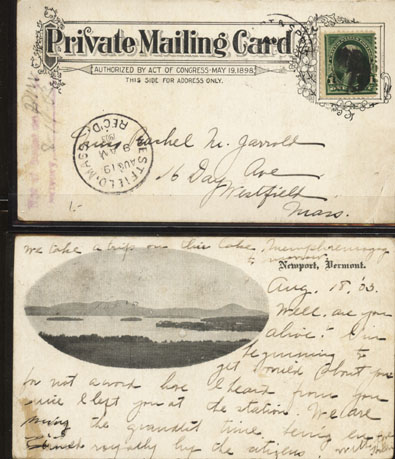 Private Mailing Card
AUTHORIZED BY ACT OF CONGRESS-MAY 19, 1898.
THIS SIDE FOR ADDRESS ONLY.
1
WESTFIELD, MASS.
AUG 19
8 AM
REC'D.
Miss Rachel M. Jarrold
16 Day Ave
Westfield
Mass.
1.-
We take a trip on this lake, Memphremagog
Newport, Vermont.
Aug. 18, 03.
Well are you
alive? I'm
beginning to
get worried about you
for not a word have I heard from you
since I left you at the station. We are
the grandest time. being
royally by the citizens.